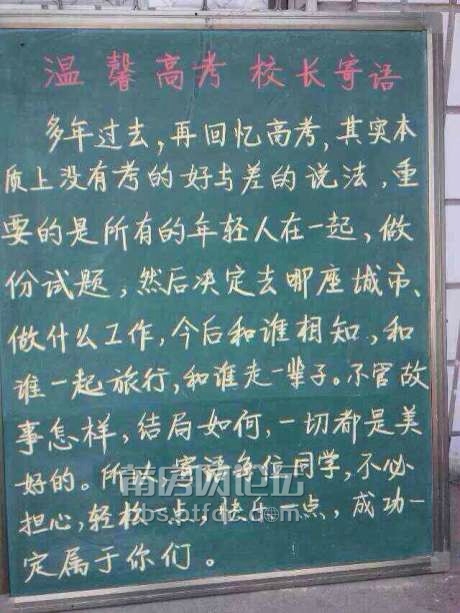 温馨高考 校长寄语
多年过去,再回忆高考,其实本
质上没有考的好与差的说法,重
要的是所有的年轻人在一起,做
份试题,然后决定去哪座城市、
做什么工作,今后和谁相知,和
谁一起旅行,和谁走一辈子。不管故
事怎样,结局如何,一切都是美
好的。所以,寄语每位同学,不必
担心,轻松一点,快乐一点,成功一
定属于你们。